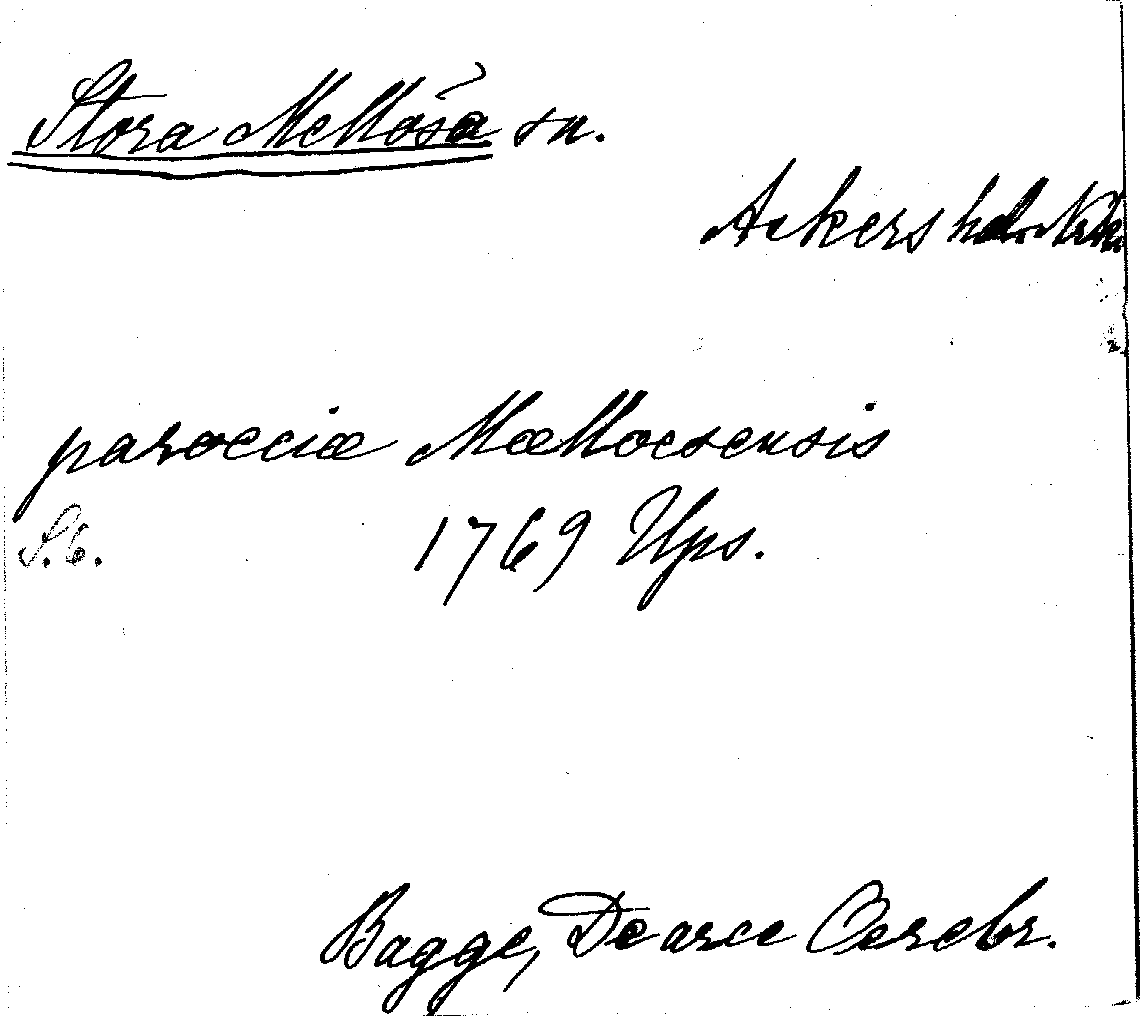 Stora Mellösa sn.
Askers hd. Närke
paroecciæ Mællocsensis
S. 6. 1769 Ups.
Bagge, De arce Oerebr.